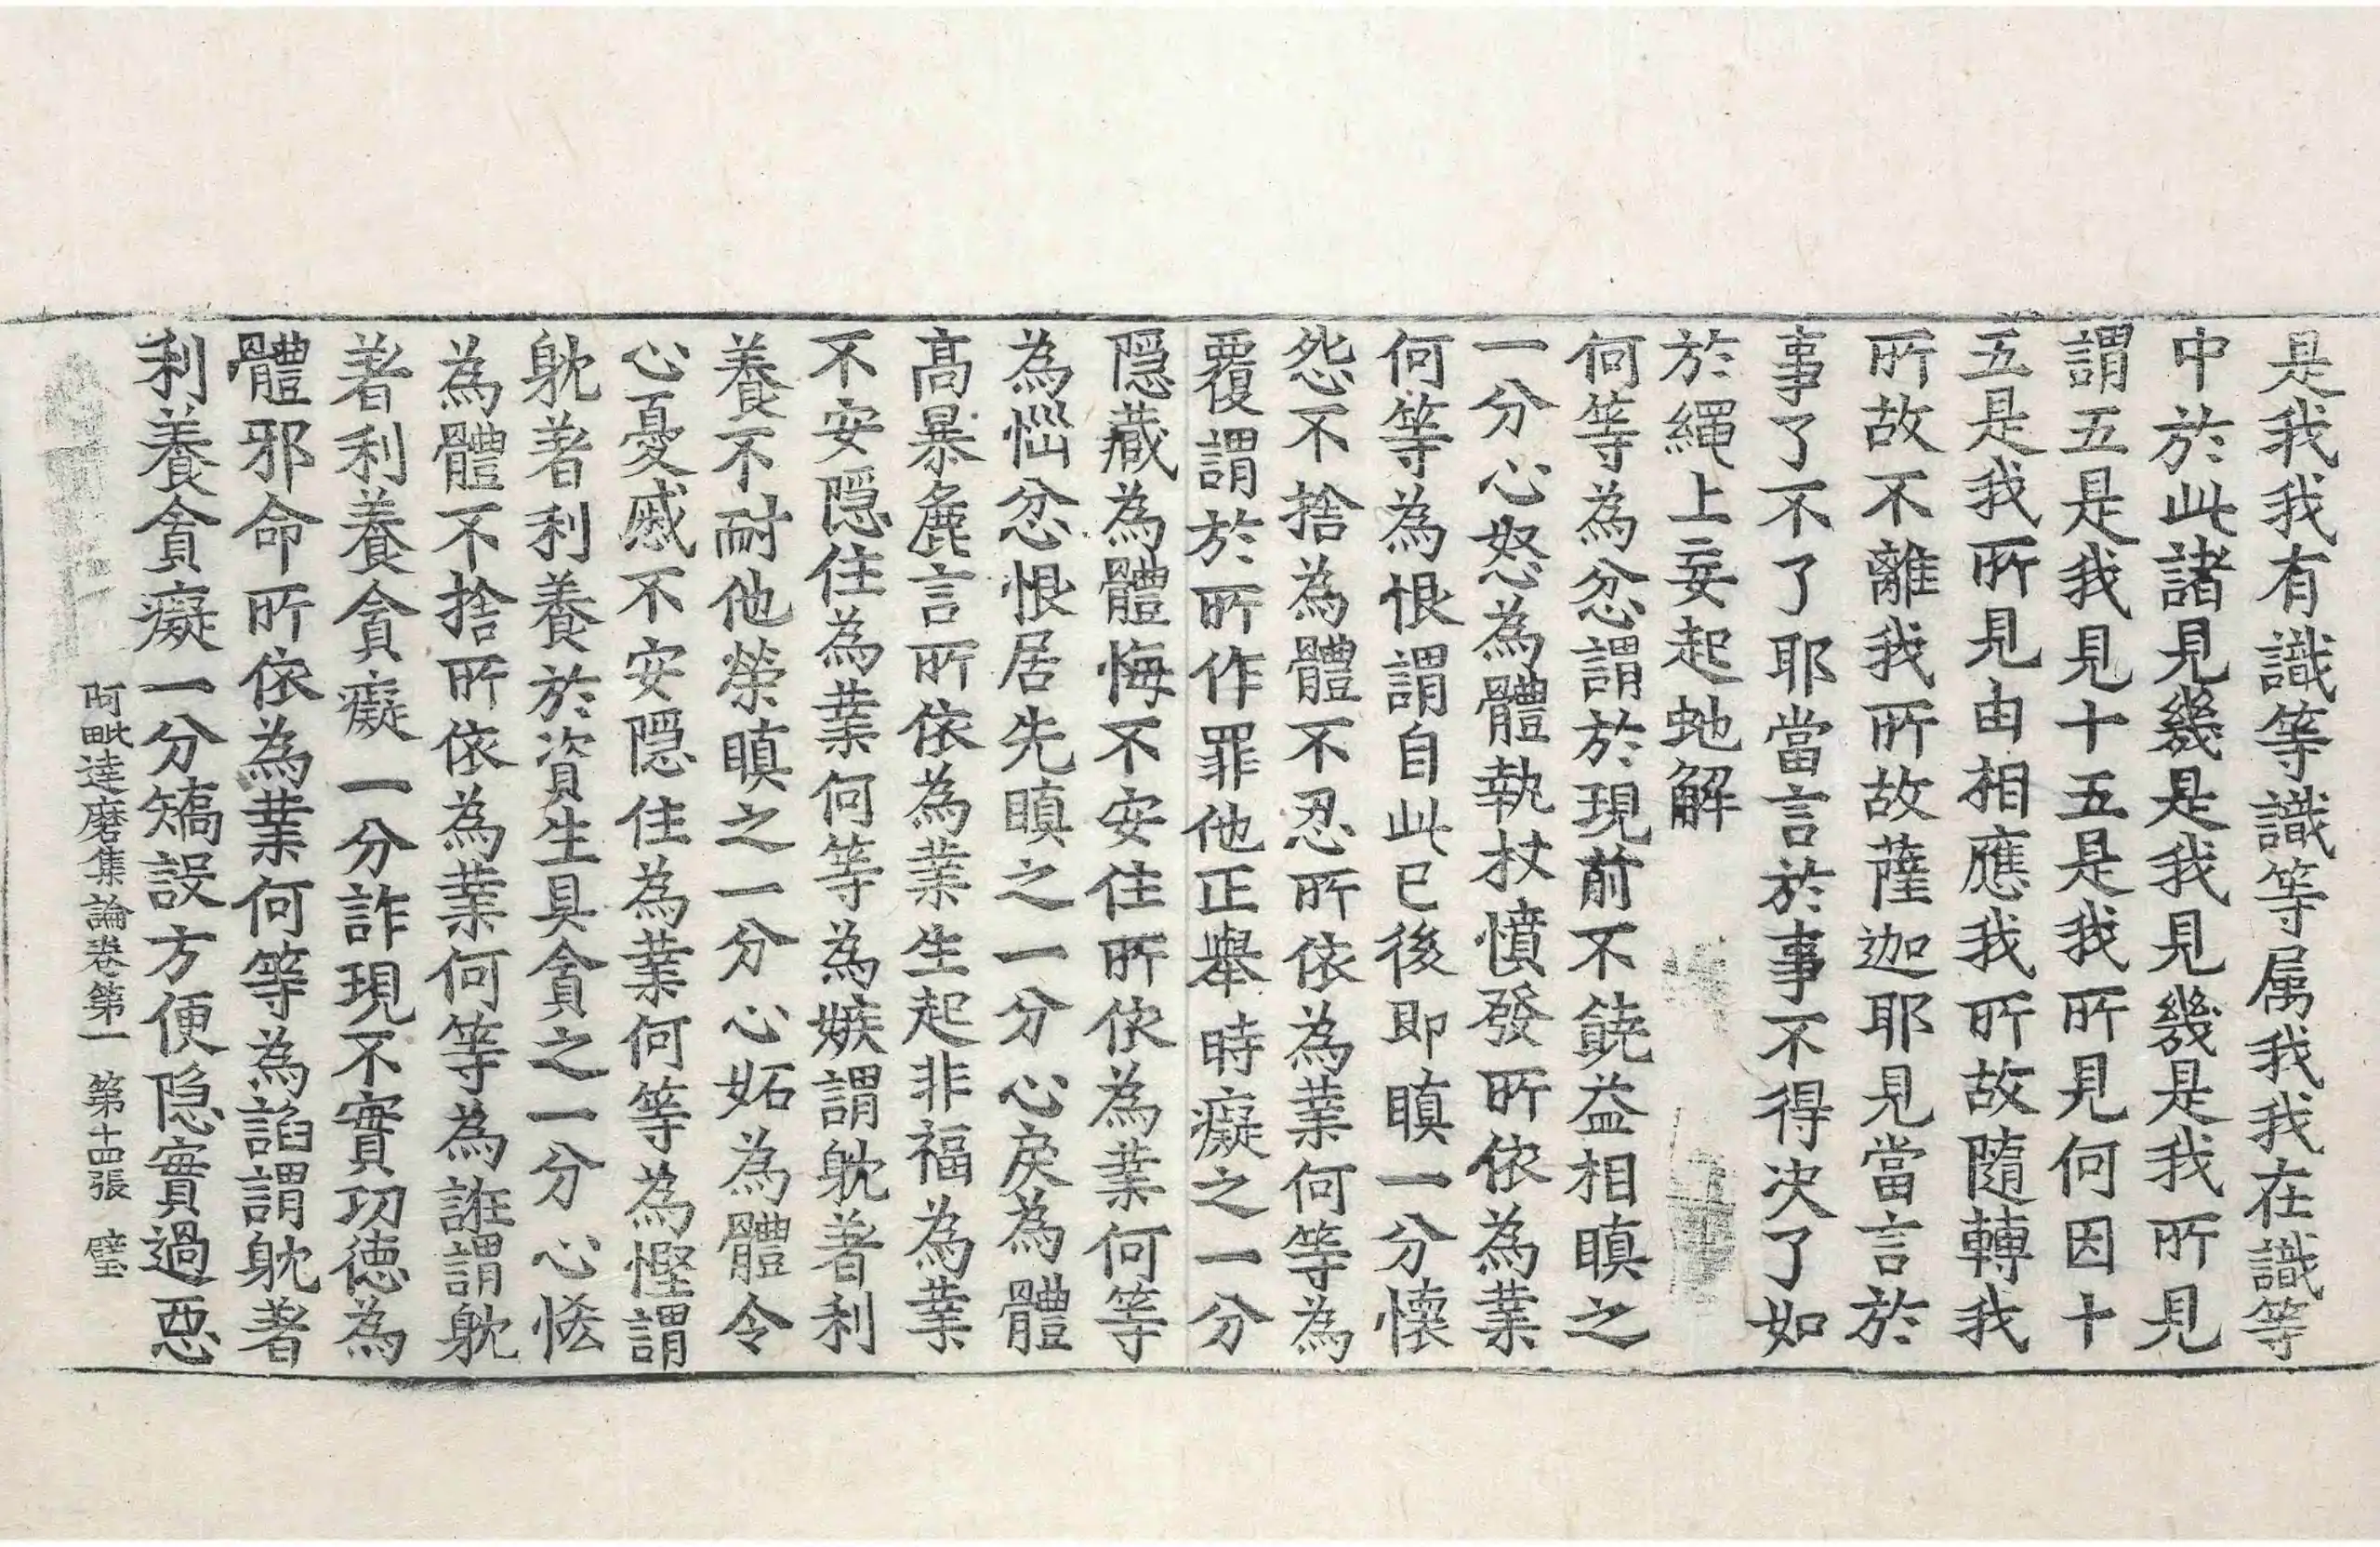 是我我有識等識等属我我在識等
中於此諸見幾是我見幾是我所見
謂五是我見十五是我所見何因十
五是我所見由相應我所故隨轉我
所故不離我所故薩迦耶見當言於
事了不了耶當言於事不得决了如
於繩上妄起虵解
何等為忿謂於現前不饒益相瞋之
一分心怒為體執杖憤發所依為業
何等為恨謂自此已後即瞋一分懐
怨不捨為體不忍所依為業何等為
覆謂於所作罪他正舉時癡之一分
隱藏為體悔不安住所依為業何等
為惱忿恨居先瞋之一分心戾為體
高暴麁言所依為業生起非福為業
不安隱住為業何等為嫉謂躭著利
養不耐他榮瞋之一分心妬為體令
心憂慼不安隱住為業何等為慳謂
躭著利養於資生具貪之一分心悋
為體不捨所依為業何等為誑謂躭
著利養貪癡一分詐現不實功德為
體邪命所依為業何等為諂謂躭著
利養貪癡一分矯設方便隐實過惡
阿毗達磨集論卷第一 第十四張 璧